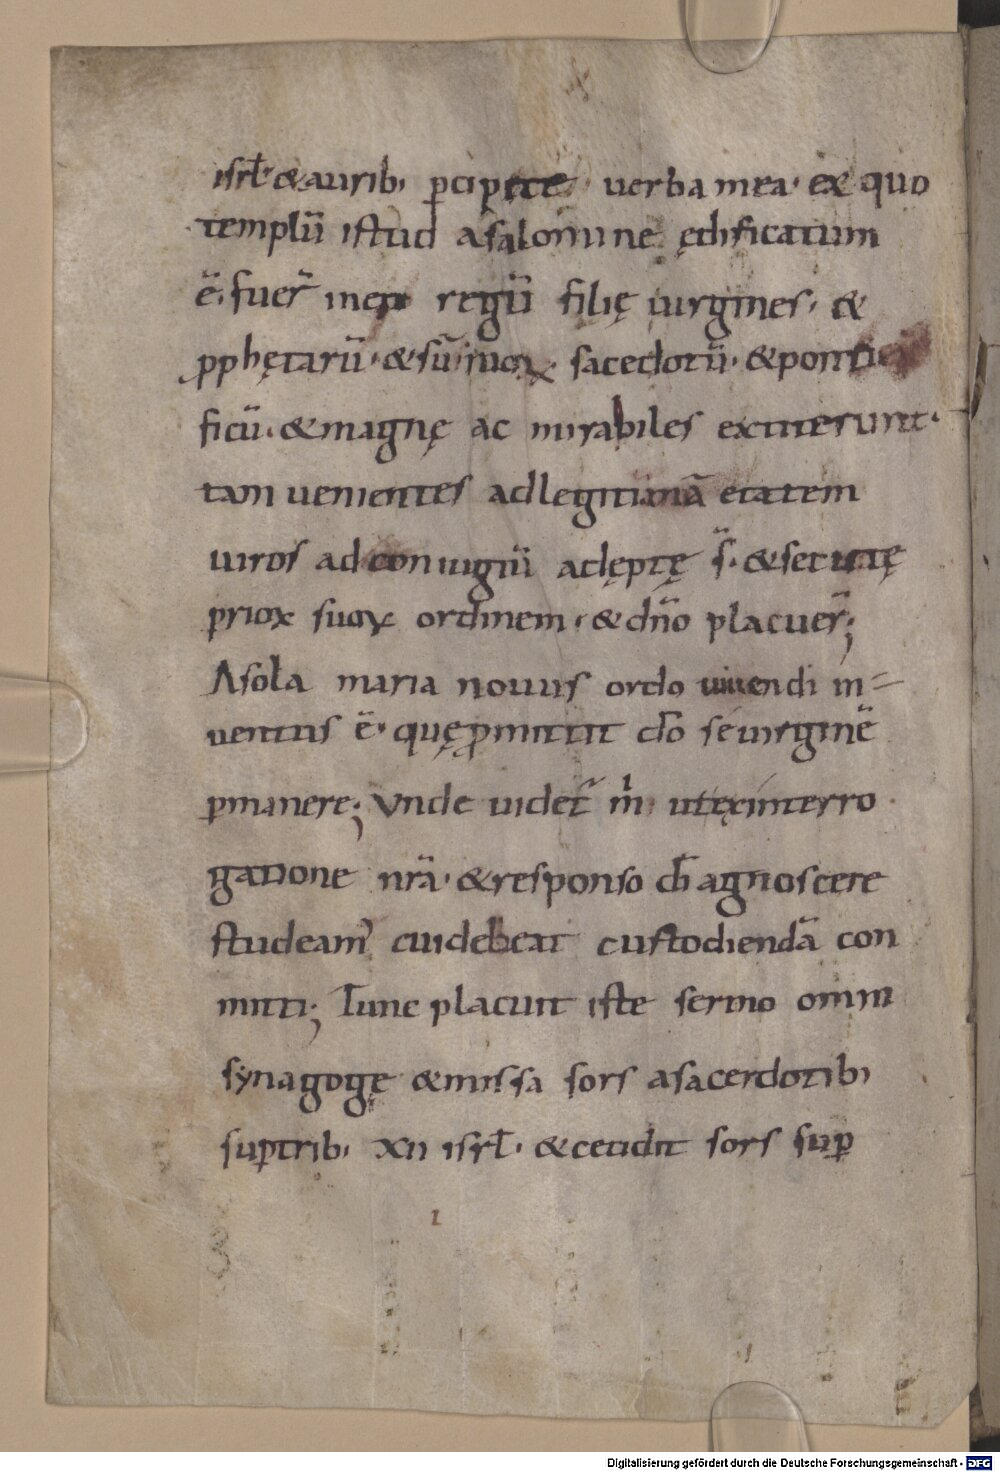 isrł· & aurib; p̲cipite· uerba mea· ex quo
templū istud a salomone ędificatum
ē· fuer̄ in eo regū filię uirgines· &
p̲phętarū· & sūmoꝝ sacedotū· & ponti
ficū· & magnę ac mirabiles extiterunt·
tam uenientes ad legitimā etatem
uiros ad coniugiū adęptę s̄· & secutę
prioꝝ suoꝝ ordinem· & dn̄o placuer̄;
A sola maria nouus ordo uiuendi in-
uentus ē· quę p̲mittit dō se uirginē
p̲manere; Vnde uidet̄ m̄ ut ex interro
gatione nr̄a· & responso dī agnoscere
studeam᾽ cui debeat custodienda con
mitti; Tunc placuit iste sermo omni
synagogę & missa sors a sacerdotib;
sup̲ trib; XII isrł· & cecidit sors sup̲
Digitalisierung gefördert durch die Deutsche Forschungsgemeinschaft - DFG